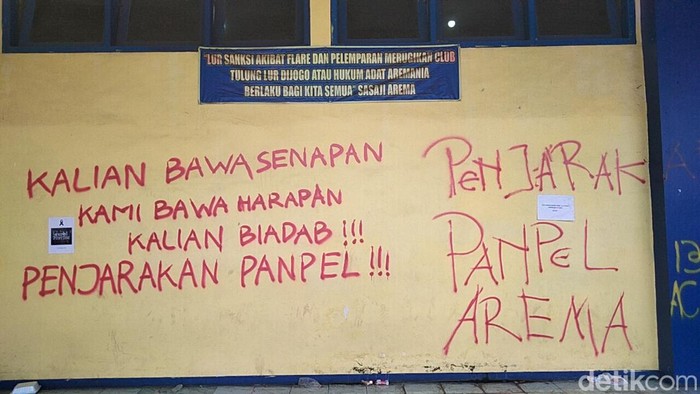 "LUR SANKSI AKIBAT FLARE DAN PELEMPARAN MERUGIKAN CLUB
TULUNG LUR DIJOGO ATAU HUKUM ADAT AREMANIA
BERLAKU BAGI KITA SEMUA" SASAJI AREMA
KALIAN BAWA SENAPAN
KAMI BAWA HARAPAN
KALIAN BIADAB !!!
PENJARAKAN PANPEL !!!
PENJARAK
PANPEL
AREMA
13
AC
detikcom